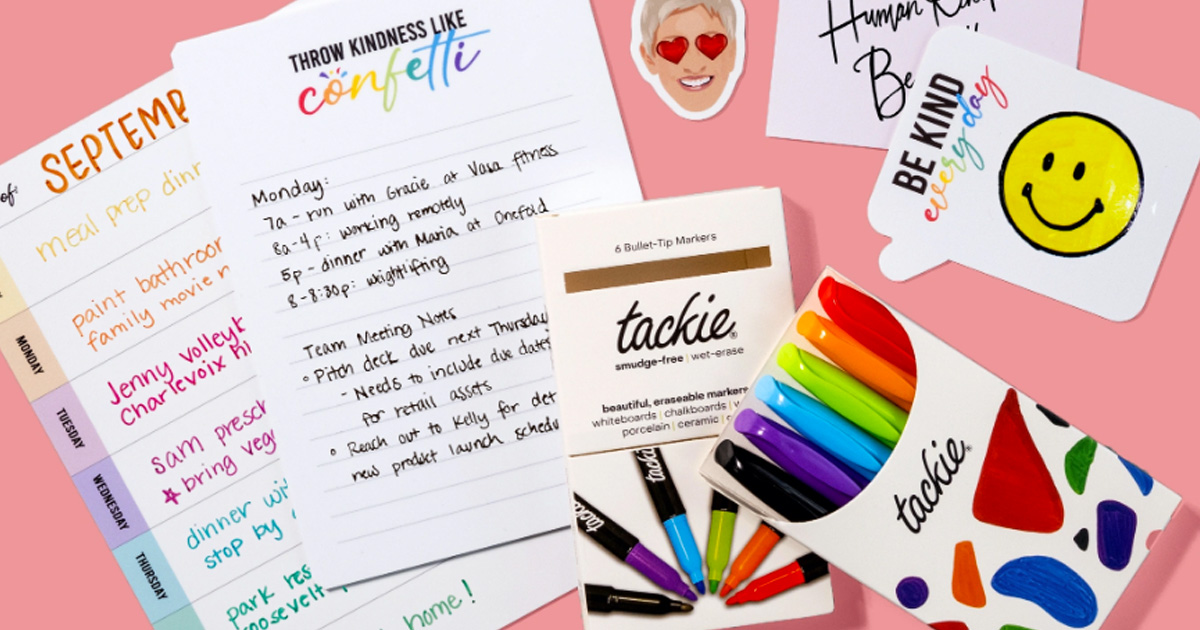 of:
SEPTEMB
meal prep dinn
paint bathroor
family movie n
MONDAY
Jenny Volleyb
Charlevoix
TUESDAY
sam presch
★ bring veg
WEDNESDAY
dinner wi
stop by
THURSDAY
park res
home!
THROW KINDNESS LIKE
confetti
Monday:
7a - run with Gracie at Vasa fitness
8a-4p: working remotely
5p - dinner with Maria at Oncfold
8-8:30p: weightlifting
Team Meeting Notes
• Pitch deck due next Thursday
- Needs to include due dates
for retail assets
• Reach out to Kelly for det
new product launch schedu
Human
Be
BE KIND
everyday
6 Bullet-Tip Markers
tackie®
smudge-free | wet-erase
beautiful, eraseable markers
whiteboards | chalkboards | w
porcelain | ceramic |
tackie
tackie
tackie
tackie®